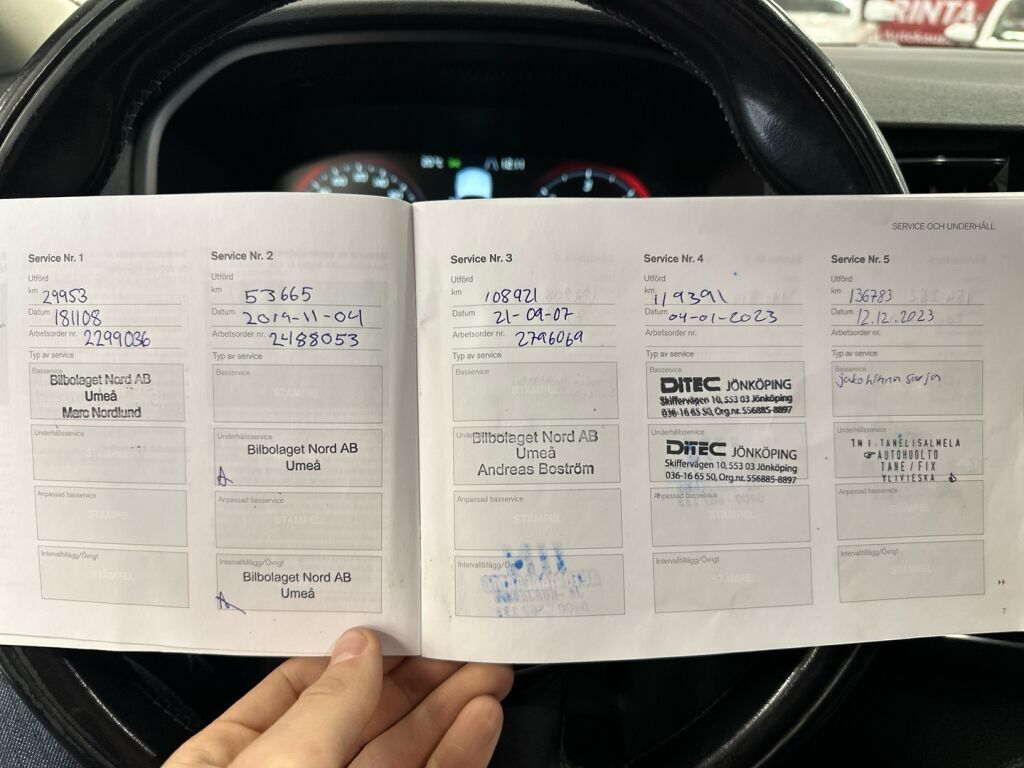 RINTA
SERVICE OCH UNDERHÅLL
Service Nr. 1
Utförd
km 29953
Datum 181108
Arbetsorder nr. 2299036
Typ av service
Basservice
Bilbolaget Nord AB
Umeå
Marc Nordlund
Underhållsservice
STÄMPEL
Anpassad basservice
STÄMPEL
Intervalltillägg/Övrigt
STÄMPEL
Service Nr. 2
Utförd
km 53665
Datum 2019-11-04
Arbetsorder nr. 2488053
Typ av service
Basservice
STÄMPEL
Underhållsservice
Bilbolaget Nord AB
Umeå
Anpassad basservice
STÄMPEL
Intervalltillägg/Övrigt
Bilbolaget Nord AB
Umeå
Service Nr. 3
Utförd
km 108921
Datum 21-09-07
Arbetsorder nr. 2796069
Typ av service
Basservice
STÄMPEL
Underhållsservice
Bilbolaget Nord AB
Umeå
Andreas Boström
Anpassad basservice
STÄMPEL
Intervalltillägg/Övrigt
Service Nr. 4
Utförd
km 119391
Datum 04-01-2023
Arbetsorder nr.
Typ av service
Basservice
DITEC JÖNKÖPING
Skiffervägen 10, 553 03 Jönköping
036-16 65 50, Org.nr. 556885-8897
Underhållsservice
DITEC JÖNKÖPING
Skiffervägen 10, 553 03 Jönköping
036-16 65 50, Org.nr. 556885-8897
Anpassad basservice
STÄMPEL
Intervalltillägg/Övrigt
STÄMPEL
Service Nr. 5
Utförd
km 136783
Datum 12.12.2023
Arbetsorder nr.
Typ av service
Basservice
jakohihna sarja
Underhållsservice
TMI:TANELISALMELA
AUTOHUOLTO
TANE/FIX
YLIVIESKA
Anpassad basservice
STÄMPEL
Intervalltillägg/Övrigt
STÄMPEL
7